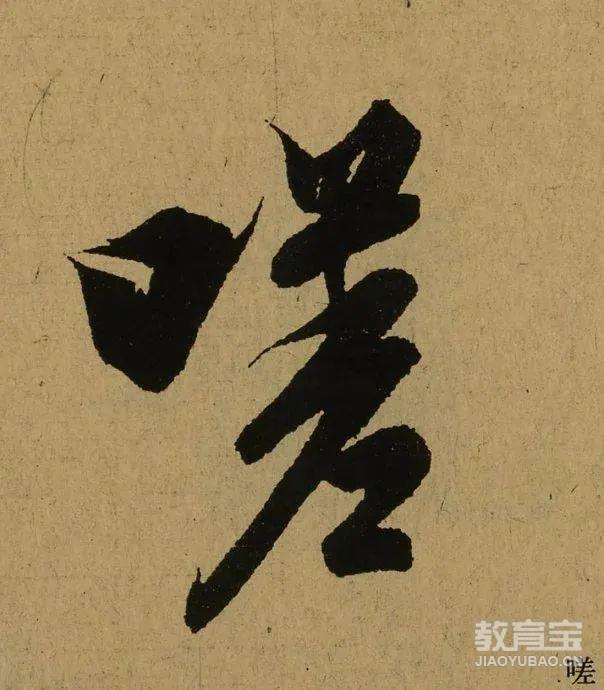 嗟
教育宝
JIAOYUBAO.CN
嗟